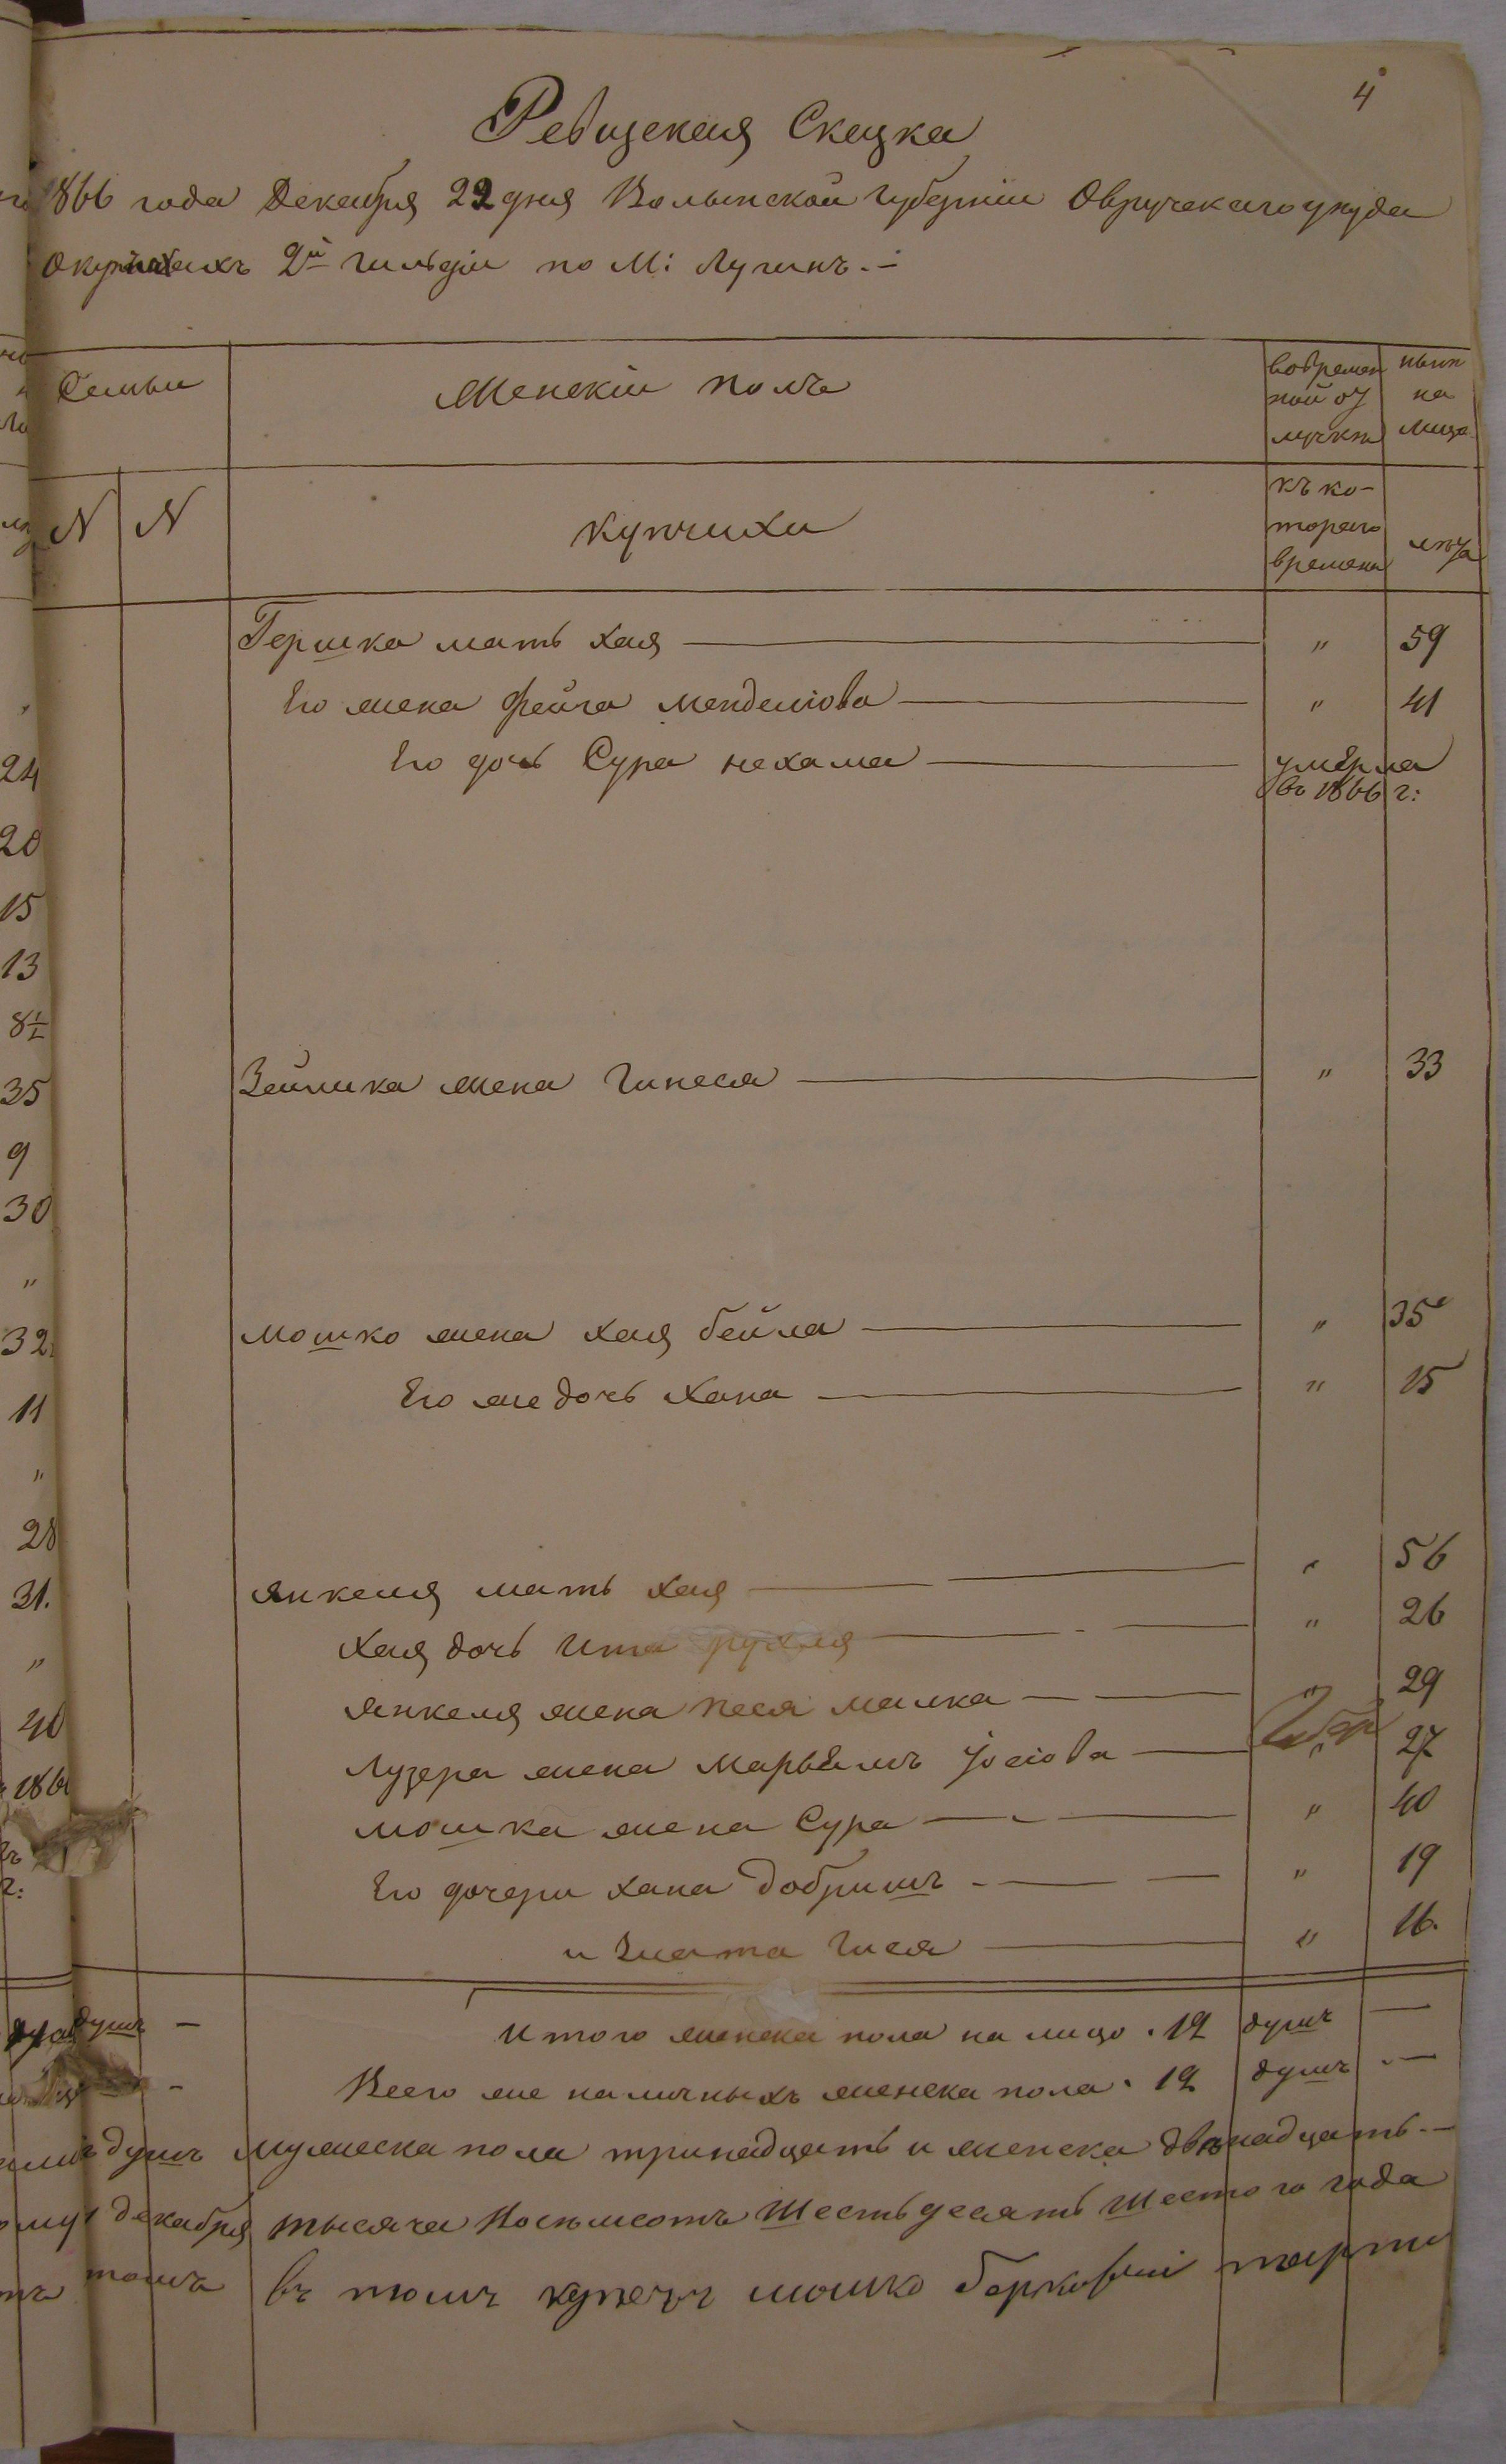 4
Ревизская Сказка
1866 года Декабря 22 дня Волынской губернiи Овручскаго уезда
О купчихахъ 2й гильдiи по М: Лугинъ.-
Семьи
Женскiй полъ
во времен
ной от
лучкѣ
нынѣ
на
лицо
N
N
Купчихи
къ ко-
тораго
времени
лѣта
Гершка мать Хая — " 59
Его жена Фейга Менделiова — " 41
Его дочь Сура Нехама — умерла
въ 1866 г:
Зейлика жена Гинеся — " 33
Мошко жена Хая Бейла — " 35
Его же дочь Хана — " 15
Янкеля мать Хая — " 56
Хая дочь Ита Рухля — " 26
Янкеля жена Песя Малка — " 29
Лузера жена Марьямъ Iосiова — " 27
Мошка жена Сура — " 40
Его дочери Хана Добришъ — " 19
и Злата Гися — " 16.
24
20
15
13
8½
35
9
30
"
32
11
"
28
31.
"
40
186
г:
душъ —
Итого женска пола на лицо . 12 душъ —
Всего же наличныхъ женска пола . 12 душъ . —
душъ мужеска пола тринадцать и женска двѣнадцать.-
декабря тысяча Восемьсотъ Шестьдесятъ Шестого года
томъ въ томъ купецъ мошко берковичъ